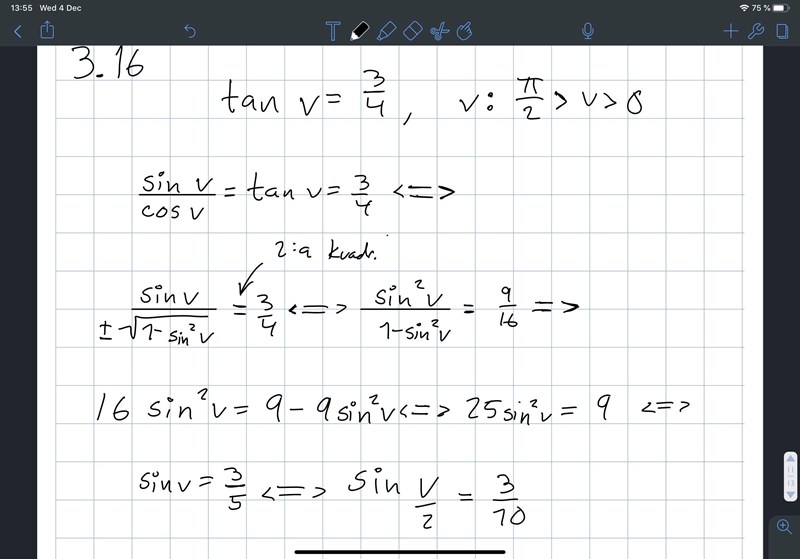 13:55 Wed 4 Dec 75 %
3.16
tan v = 3/4, v: π/2 > v > 0
sin v / cos v = tan v = 3/4 <=>
2:a kvadr.
sin v / ±√(1-sin²v) = 3/4 <=> sin²v / 1-sin²v = 9/16 =>
16 sin²v = 9 - 9 sin²v <=> 25 sin²v = 9 <=>
sin v = 3/5 <=> sin v/2 = 3/10